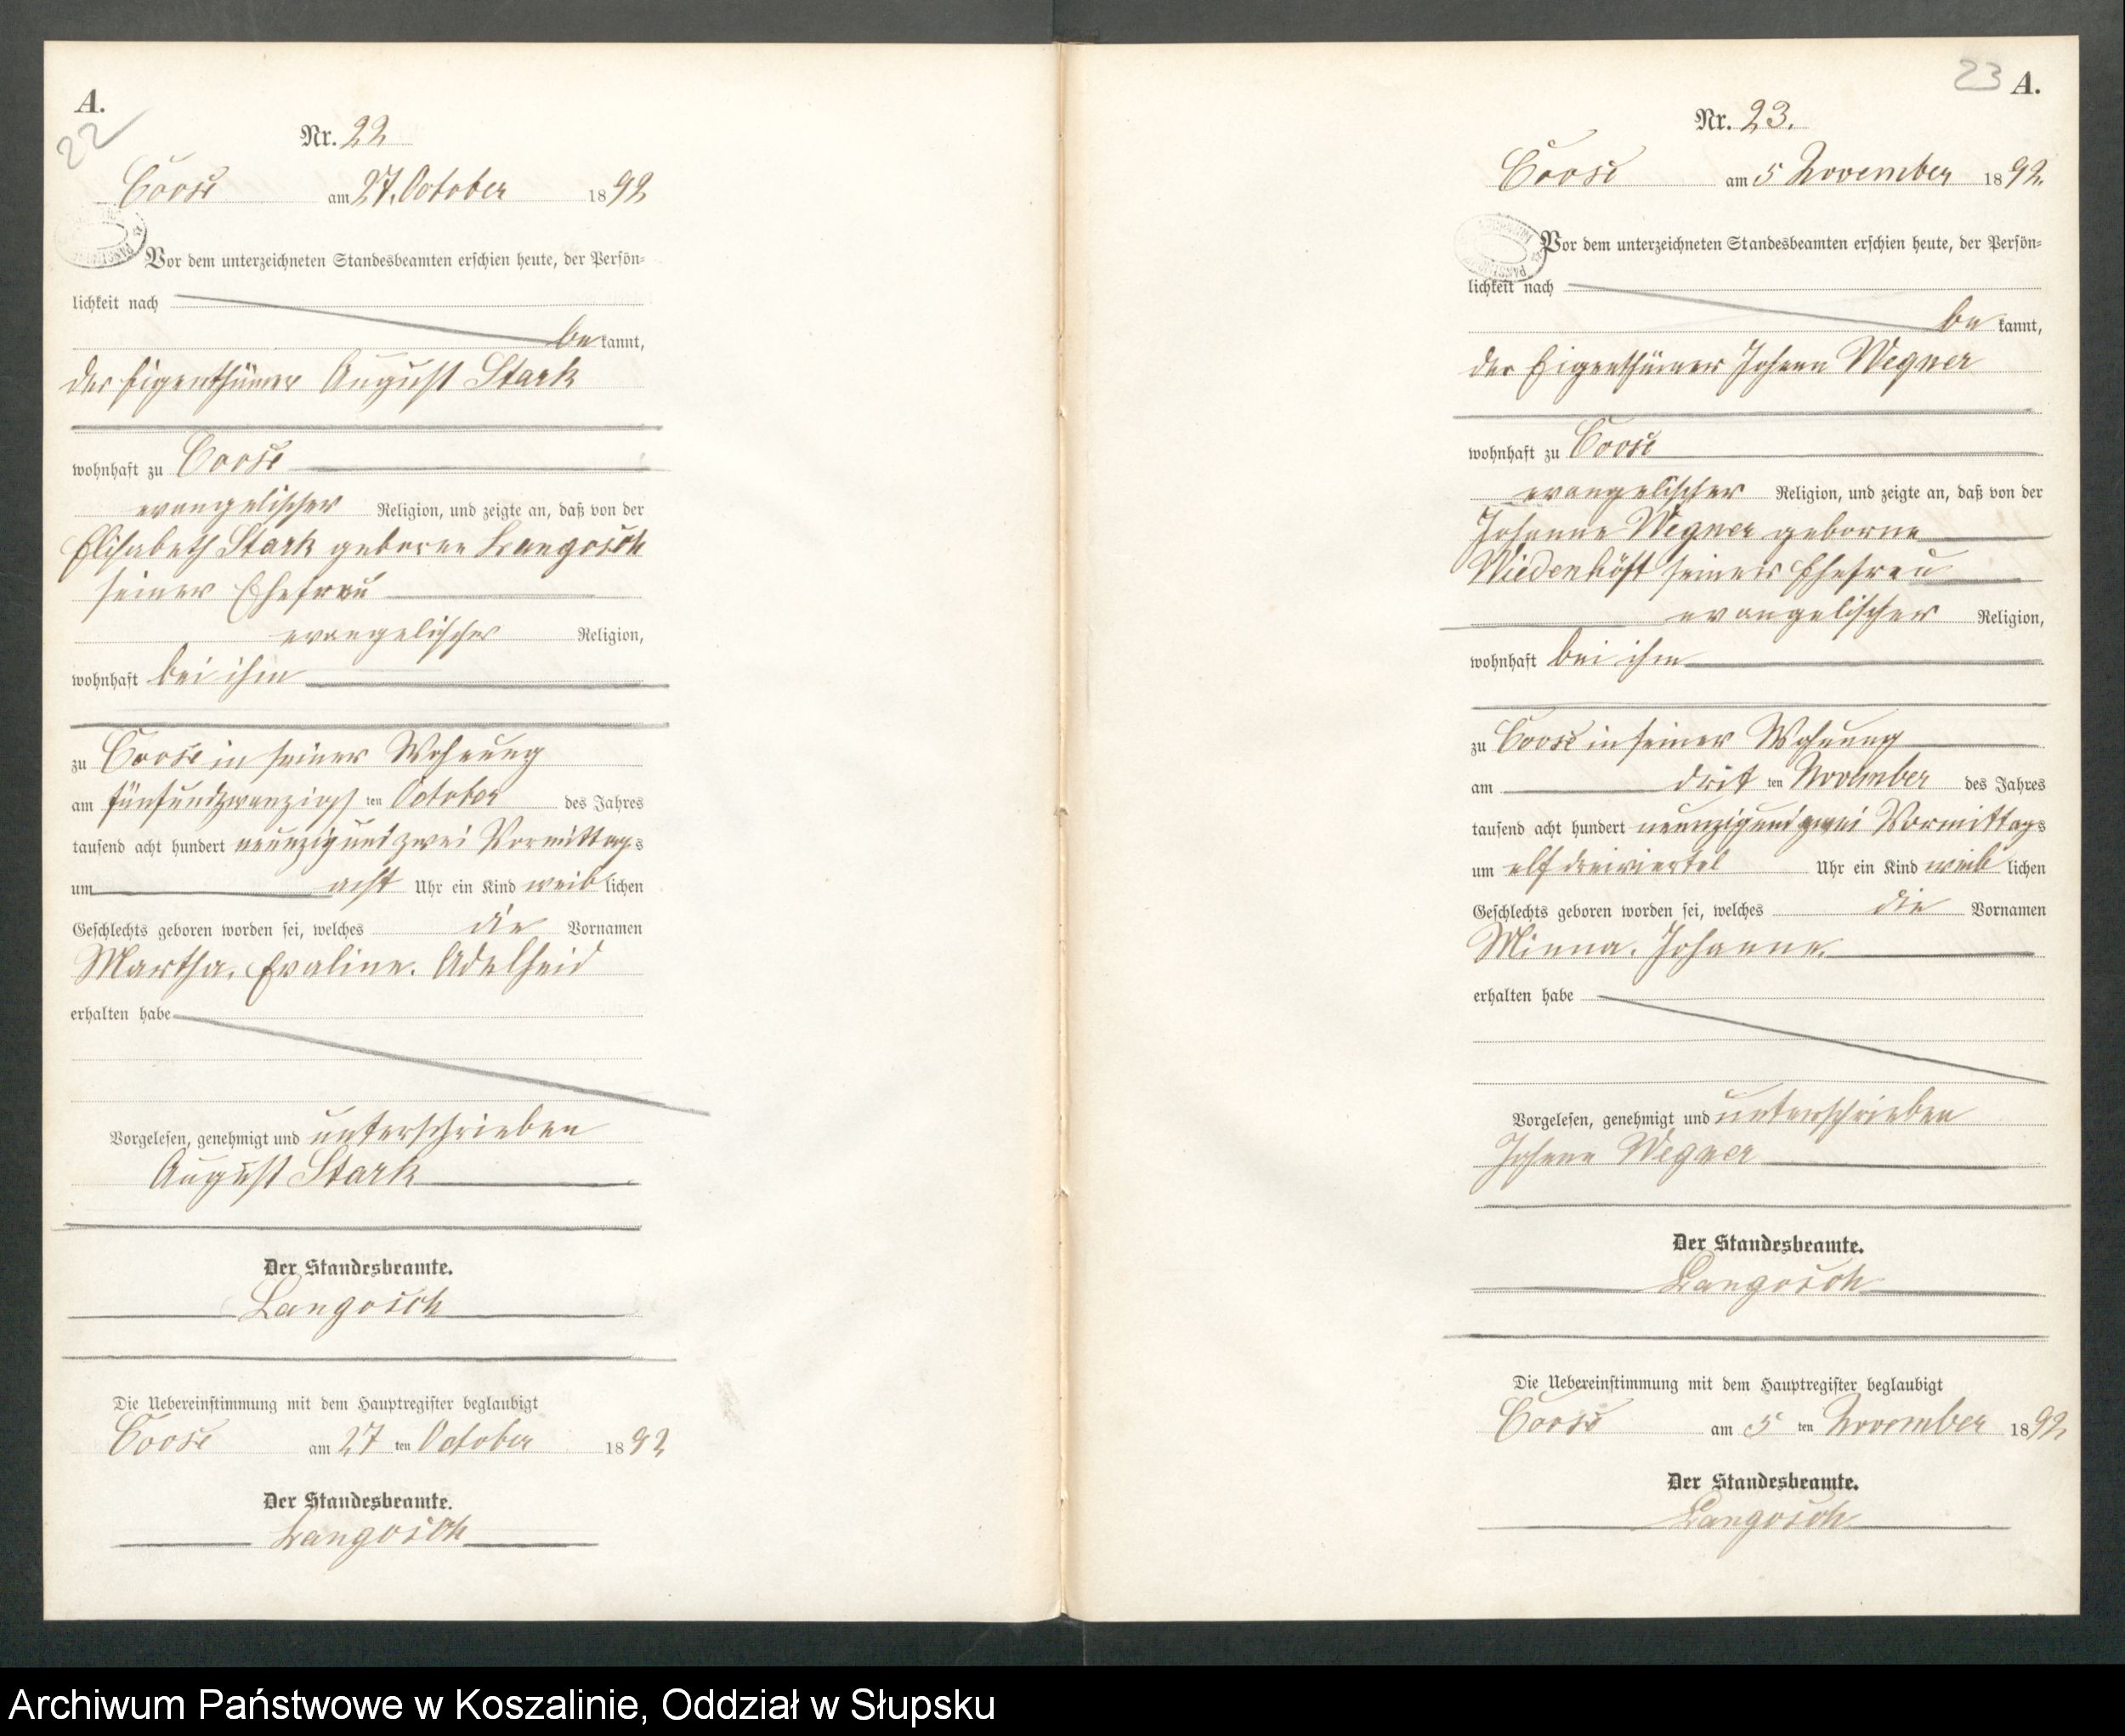 A.
22
Nr. 22
Coose am 27. October 1892
Vor dem unterzeichneten Standesbeamten erschien heute, der Persön-
lichkeit nach
bekannt,
der Eigenthümer August Stark
wohnhaft zu Coose
evangelischer Religion, und zeigte an, daß von der
Elisabeth Stark geborne Langosch
seiner Ehefrau
evangelischer Religion,
wohnhaft bei ihm
zu Coose in seiner Wohnung
am fünfundzwanzigsten October des Jahres
tausend acht hundert neunzig und zwei Vormittags
um acht Uhr ein Kind weiblichen
Geschlechts geboren worden sei, welches die Vornamen
Martha. Evaline. Adelheid
erhalten habe
Vorgelesen, genehmigt und unterschrieben
August Stark
Der Standesbeamte.
Langosch
Die Uebereinstimmung mit dem Hauptregister beglaubigt
Coose am 27 ten October 1892
Der Standesbeamte.
Langosch
23 A.
Nr. 23.
Coose am 5 November 1892.
Vor dem unterzeichneten Standesbeamten erschien heute, der Persön-
lichkeit nach
bekannt,
der Eigenthümer Johann Wegner
wohnhaft zu Coose
evangelischer Religion, und zeigte an, daß von der
Johanne Wegner geborne
Wiedenhöft seiner Ehefrau
evangelischer Religion,
wohnhaft bei ihm
zu Coose in seiner Wohnung
am dritten November des Jahres
tausend acht hundert neunzig und zwei Vormittags
um elf dreiviertel Uhr ein Kind weiblichen
Geschlechts geboren worden sei, welches die Vornamen
Minna. Johanne.
erhalten habe
Vorgelesen, genehmigt und unterschrieben
Johann Wegner
Der Standesbeamte.
Langosch
Die Uebereinstimmung mit dem Hauptregister beglaubigt
Coose am 5 ten November 1892
Der Standesbeamte.
Langosch
Archiwum Państwowe w Koszalinie, Oddział w Słupsku